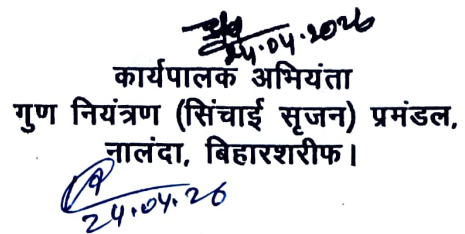 24.04.2026
कार्यपालक अभियंता
गुण नियंत्रण (सिंचाई सृजन) प्रमंडल,
नालंदा, बिहारशरीफ।
24.04.26